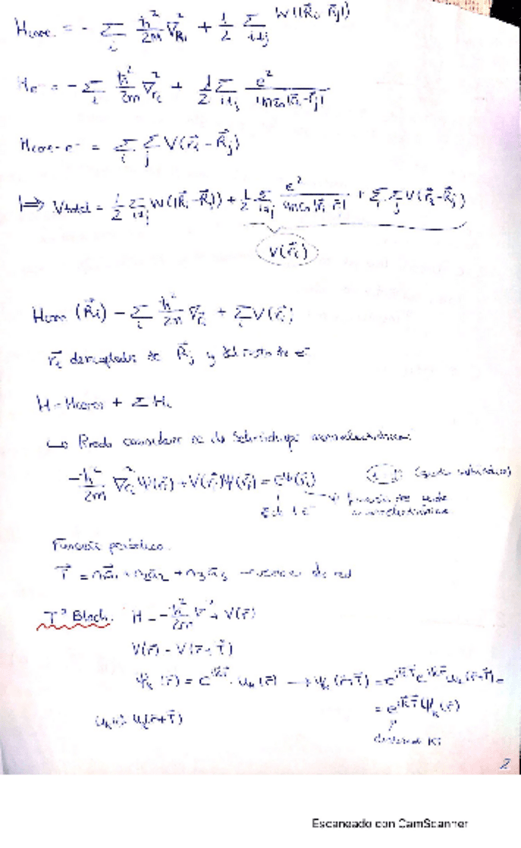 Hcore = - Σ_i ħ²/2m ∇²_Ri + 1/2 Σ_i≠j W(|R⃗i - R⃗j|)
He⁻ = - Σ_i ħ²/2m ∇²_ri + 1/2 Σ_i≠j e²/4πε0|r⃗i - r⃗j|
Hcore-e⁻ = Σ_i Σ_j V(r⃗i - R⃗j)
⟹ Vtotal = 1/2 Σ_i≠j W(|R⃗i - R⃗j|) + 1/2 Σ_i≠j e²/4πε0|r⃗i - r⃗j| + Σ_i Σ_j V(r⃗i - R⃗j)
V(r⃗i)
Hcore (R⃗i) - Σ_i ħ²/2m ∇²_ri + Σ_i V(r⃗i)
r⃗i desacoplados de R⃗j y del resto de e⁻
H = Hcores + Σ Hi
↳ Puedo considerar ec de Schrödinger monoelectrónica:
-ħ²/2m ∇²_ri Ψ(r⃗i) + V(r⃗i)Ψ(r⃗i) = εΨ(r⃗i)
E de 1 e⁻
función de onda
monoelectrónica
Función periódica.
T⃗ = n1a⃗1 + n2a⃗2 + n3a⃗3 → vector de red
Tª Bloch. H = -ħ²/2m ∇² + V(r⃗)
V(r⃗) = V(r⃗ + T⃗)
Ψk(r⃗) = e^{ik⃗r⃗} · uk(r⃗) → Ψk(r⃗+T⃗) = e^{ik⃗T⃗} e^{ik⃗r⃗} uk(r⃗+T⃗) =
= e^{ik⃗T⃗} Ψk(r⃗)
uk(r⃗) = uk(r⃗+T⃗)
2
Escaneado con CamScanner